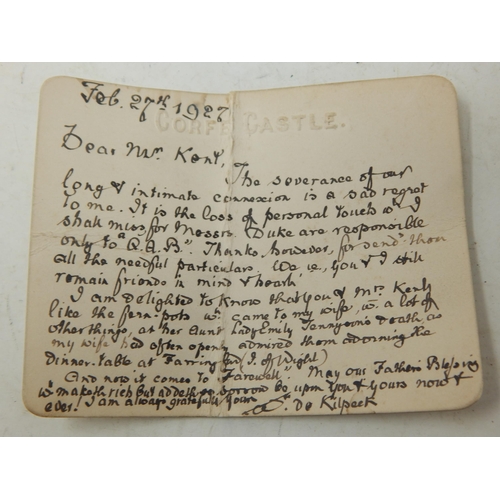 Feb. 27th 1927
CORFE CASTLE.
Dear Mr. Kent,
The severance of our
long & intimate connexion is a sad regret
to me. It is the loss of personal touch wh I
shall miss for Messrs. Duke are responsible
only to "Q.A.B". Thanks, however, for send'g them
all the needful particulars. We, ie, you & I still
remain friends in mind & heart.
I am delighted to know that you & Mrs. Kent
like the fern-pots wh. came to my wife, w. a lot of
other things, at her Aunt Lady Emily Tennyson's death, as
my wife had often openly admired them adorning the
Dinner-table at Farringford (I. of Wight)
And now it comes to "Farewell". May our Father's Blessing
wh maketh rich but addeth no sorrow be upon You & yours now &
ever. I am always gratefully yours
De Kilpeck